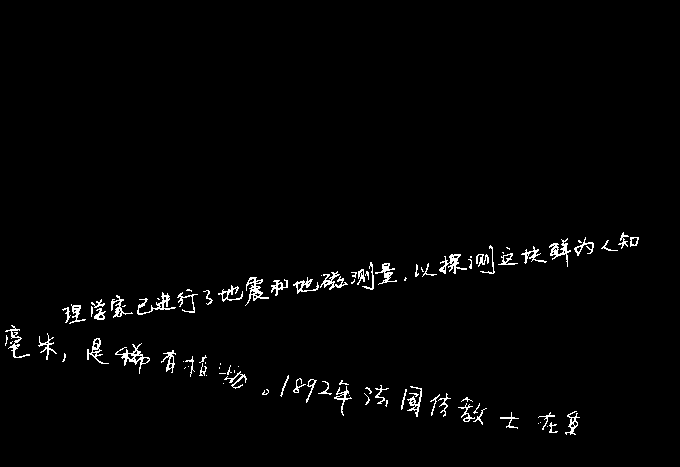 理学家已进行了地震和地磁测量，以探测这块鲜为人知
毫米，是稀有植物。1892年法国传教士在重